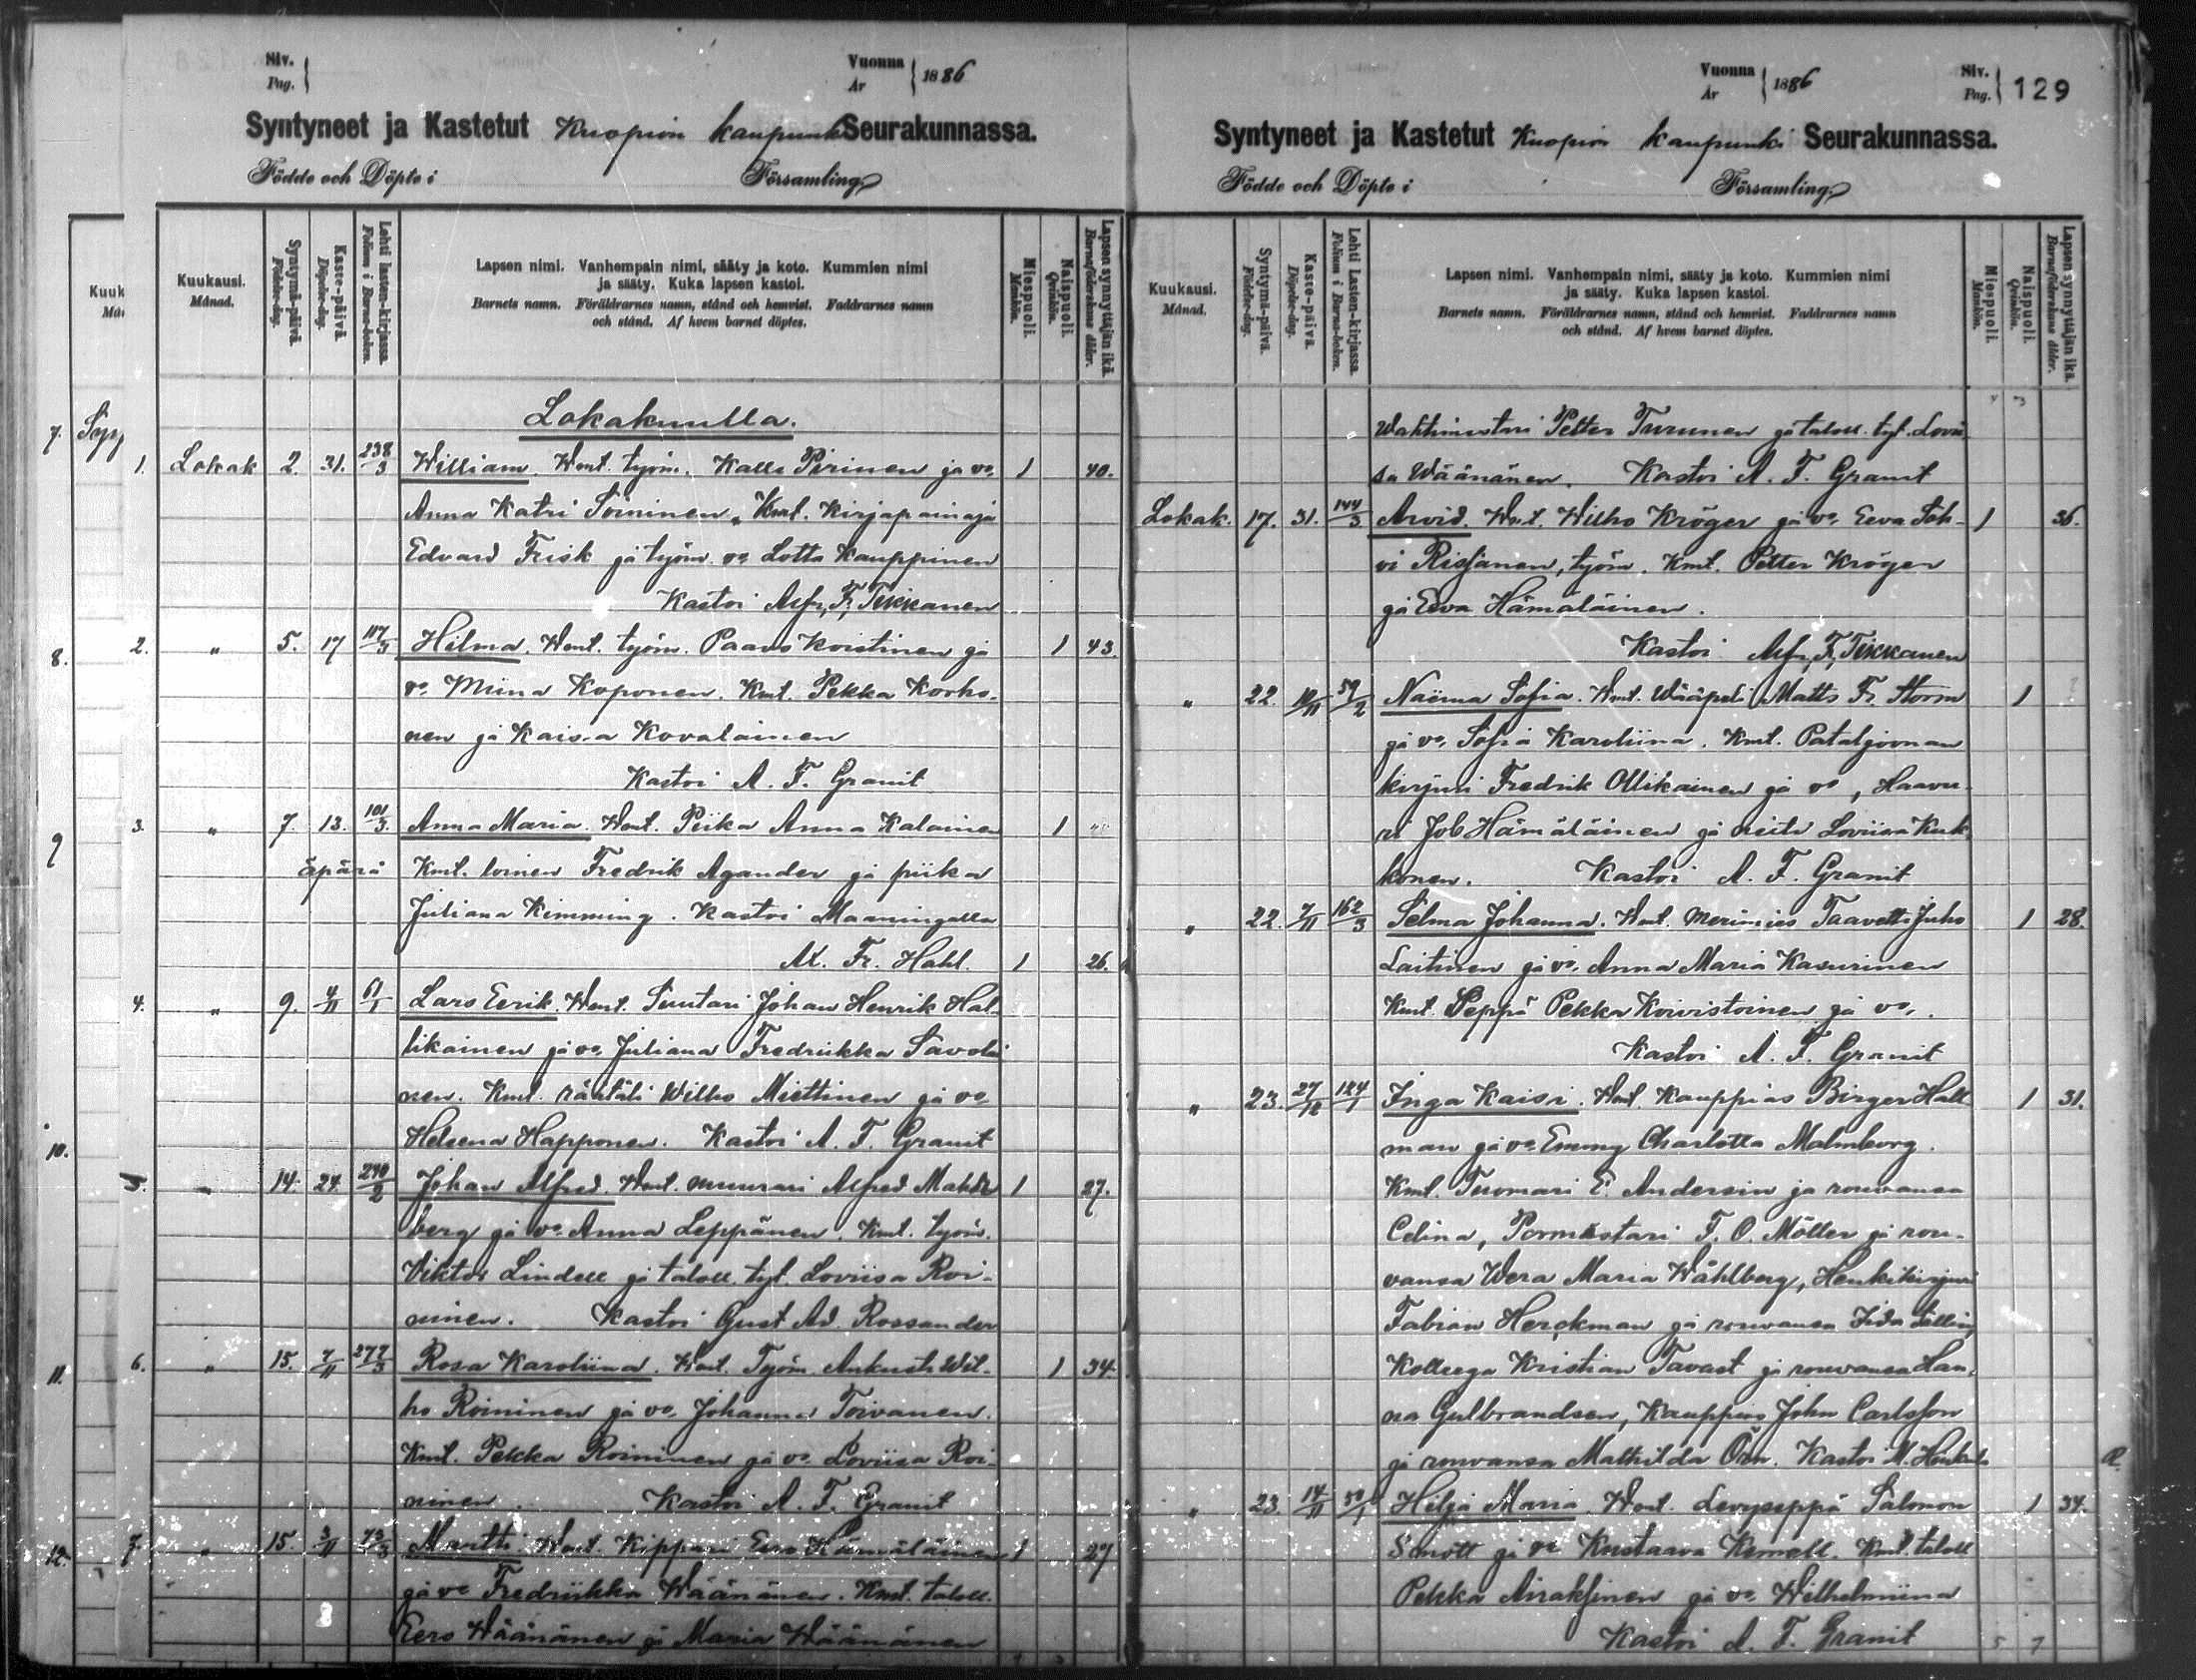 Siv.
Pag.
Vuonna
År
1886
Syntyneet ja Kastetut Kuopion kaupunki Seurakunnassa.
Födde och Döpte i Församling.
Kuukausi.
Månad.
Syntymä-päivä.
Födelse-dag.
Kaste-päivä.
Döpelse-dag.
Lehti lasten-kirjassa.
Folium i Barna-boken.
Lapsen nimi. Vanhempain nimi, sääty ja koto. Kummien nimi
ja sääty. Kuka lapsen kastoi.
Barnets namn. Föräldrarnes namn, stånd och hemvist. Faddrarnes namn
och stånd. Af hvem barnet döptes.
Miespuoli.
Mankön.
Naispuoli.
Qvinkön.
Lapsen synnyttäjän ikä.
Barnaföderskans ålder.
Lokakuulla.
1. Lokak 2. 31. 238/3 William. Wmt. työm. Kalle Pirinen ja vo. 1 40.
Anna Katri Soininen. Kmt. Kirjapainaja
Edvard Frisk ja työm. vo Lotta Kauppinen
Kastoi Alfr. F. Tikkanen
2. " 5. 17 117/3 Hilma. Wmt. työm. Paavo Koistinen ja 1 43.
vo. Miina Koponen. Kmt. Pekka Korho-
nen ja Kaisa Kovalainen
Kastoi A. F. Granit
3. " 7. 13. 101/3. Anna Maria. Wmt. Piika Anna Kalainen 1
äpärä Kmt. loinen Fredrik Agander ja piika
Juliana Kimming. Kastoi Maaningalla
Al. Fr. Hahl. 1 26.
4. " 9. 4/11 61/1 Lars Eerik. Wmt. Suutari Johan Henrik Hal-
likainen ja vo. Juliana Fredriikka Savolai
nen. Kmt. räätäli Wilho Miettinen ja vo.
Helena Happonen. Kastoi A. F. Granit
5. " 14. 24. 290/2 Johan Alfred. Wmt. muurari Alfred Mahl 1 27.
berg ja vo. Anna Leppänen. Kmt. työm.
Viktor Lindell ja taloll. tyt. Loviisa Roi-
ninen. Kastoi Gust Ad. Rossander
6. " 15. 7/11 277/3 Rosa Karoliina. Wmt. Työm. Aukusti Wil- 1 34.
ho Roininen ja vo. Johanna Toivanen.
Kmt. Pekka Roininen ja vo. Loviisa Roi-
ninen. Kastoi A. F. Granit
7. " 15. 3/11 73/3 Martti. Wmt. Kippari Eero Hämäläinen 1 27
ja vo Fredriikka Wäänänen. Kmt. taloll.
Eero Wäänänen ja Maria Wäänänen
Kuuk
7. Syy
8.
9
10.
11.
12.
Vuonna
År
1886
Siv.
Pag.
129
Syntyneet ja Kastetut Kuopion kaupunki Seurakunnassa.
Födde och Döpte i Församling.
Kuukausi.
Månad.
Syntymä-päivä.
Födelse-dag.
Kaste-päivä.
Döpelse-dag.
Lehti Lasten-kirjassa.
Folium i Barna-boken.
Lapsen nimi. Vanhempain nimi, sääty ja koto. Kummien nimi
ja sääty. Kuka lapsen kastoi.
Barnets namn. Föräldrarnes namn, stånd och hemvist. Faddrarnes namn
och stånd. Af hvem barnet döptes.
Miespuoli.
Mankön.
Naispuoli.
Qvinkön.
Lapsen synnyttäjän ikä.
Barnaföderskans ålder.
Wahtimestari Petter Turunen ja taloll. tyt. Lovii
sa Wäänänen. Kastoi A. F. Granit
Lokak. 17. 31. 144/3 Arvid. Wmt. Wilho Kröger ja vo. Eeva Soh- 1 36.
vi Rissanen, työm. Kmt. Petter Kröger
ja Eeva Hämäläinen.
Kastoi Alfr. F. Tikkanen
" 22. 10/11 59/2 Naëma Sofia. Wmt. Wääpeli Matts Fr. Storm 1
ja vo. Sofia Karoliina. Kmt. Pataljoonan
kirjuri Fredrik Ollikainen ja vo, Haavu-
ri Job Hämäläinen ja neito Loviisa Kuk-
konen. Kastoi A. F. Granit
" 22. 7/11 162/3 Selma Johanna. Wmt. Merimies Taavetti Juho 1 28.
Laitinen ja vo. Anna Maria Kasurinen
Kmt. Seppä Pekka Koivistoinen ja vo.
Kastoi A. F. Granit
" 23. 27/12 124/1 Inga Kaisi. Wmt. Kauppias Birger Hall- 1 31.
man ja vo Emmy Charlotta Malmborg.
Kmt. Tuomari E. Andersin ja rouvansa
Celina, Pormestari F. O. Möller ja rou-
vansa Wera Maria Wåhlberg, Henkikirjuri
Fabian Herckman ja rouvansa Iida
Kolleega Kristian Tavast ja rouvansa Han-
na Gulbrandsen, Kauppias John Carlsson
ja rouvansa Mathilda Örn. Kastoi
" 23. 14/11 50/1 Helja Maria. Wmt. Levyseppä Salomon 1 34.
Smött ja vo Kustaava Kemell. Kmt. taloll
Pekka Airaksinen ja vo. Wilhelmiina
Kastoi A. F. Granit 5 7